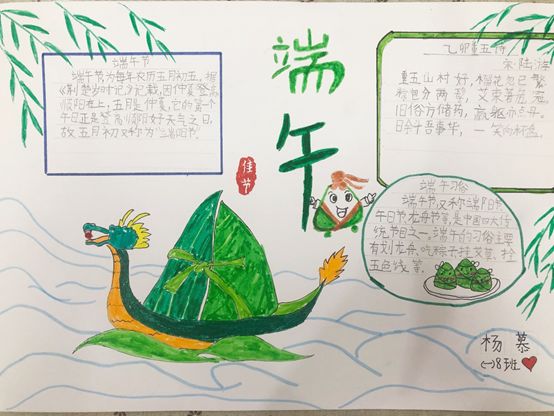 端午节
端午节为每年农历五月初五。据
《荆楚岁时记》记载,因仲夏登高
顺阳在上,五月是仲夏,它的第一个
午日正是登高顺阳好天气之日,
故五月初又称为“端阳节”。
端
午
佳
节
乙卯重五诗
宋·陆游
重五山村好,榴花忽已繁
粽包分两髻,艾束著危冠。
旧俗方储药,羸躯亦点丹。
日斜吾事毕,一笑向杯盘。
端午习俗
端午节又称端阳节
午日节龙舟节等是中国四大传
统节日之一。端午的习俗主要
有划龙舟、吃粽子挂艾草、拴
五色线等。
杨慕
(一)8班